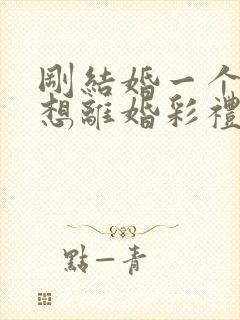 剛結婚一个
想離婚彩禮
點一青